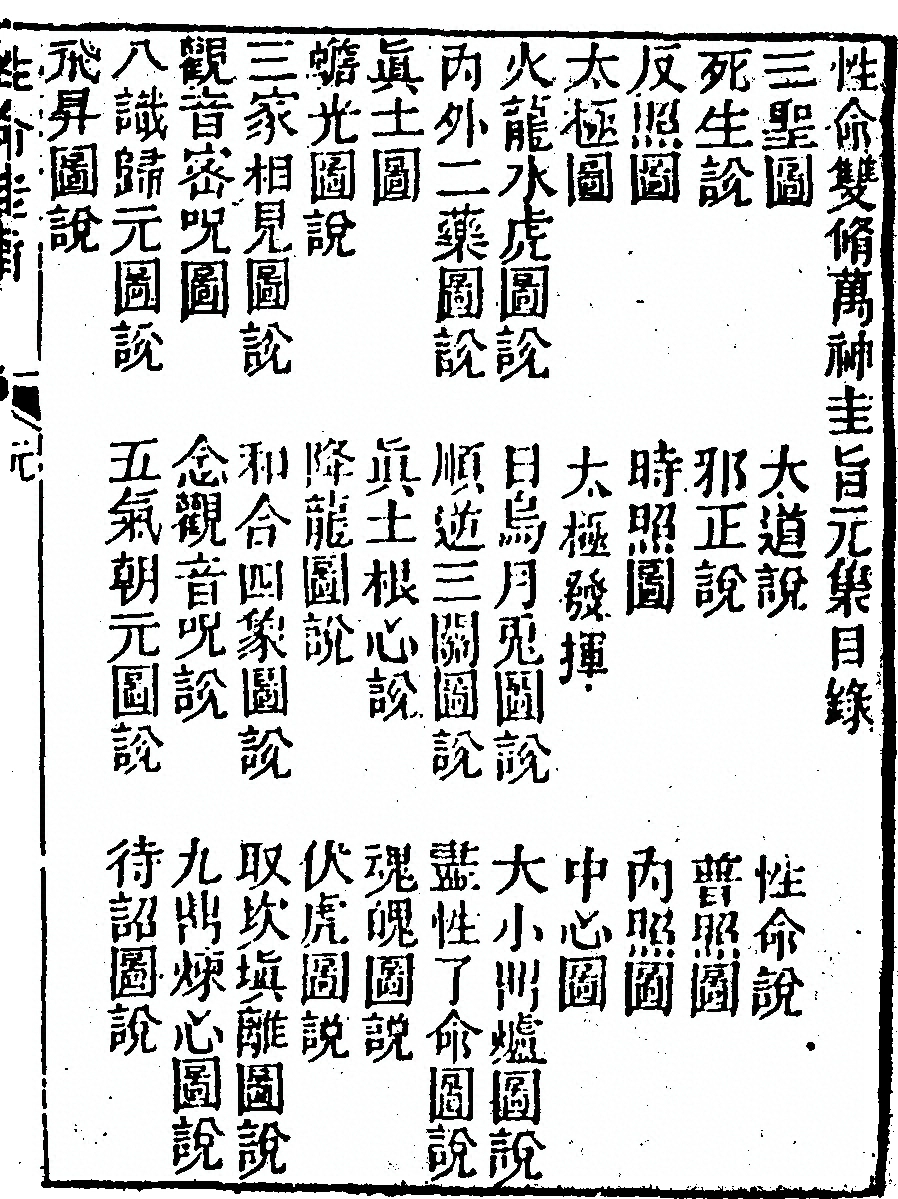 性命雙脩萬神圭旨元集目錄
三聖圖 大道說 性命說
死生說 邪正說 普照圖
反照圖 時照圖 內照圖
太極圖 太極發揮 中心圖
火龍水虎圖說 日烏月兎圖說 大小鼎爐圖說
內外二藥圖說 順逆三關圖說 盡性了命圖說
眞土圖 眞土根心說 魂魄圖說
蟾光圖說 降龍圖說 伏虎圖說
三家相見圖說 和合四象圖說 取坎塡離圖說
觀音密呪圖 念觀音呪說 九鼎煉心圖說
八識歸元圖說 五氣朝元圖說 待詔圖說
飛昇圖說
元